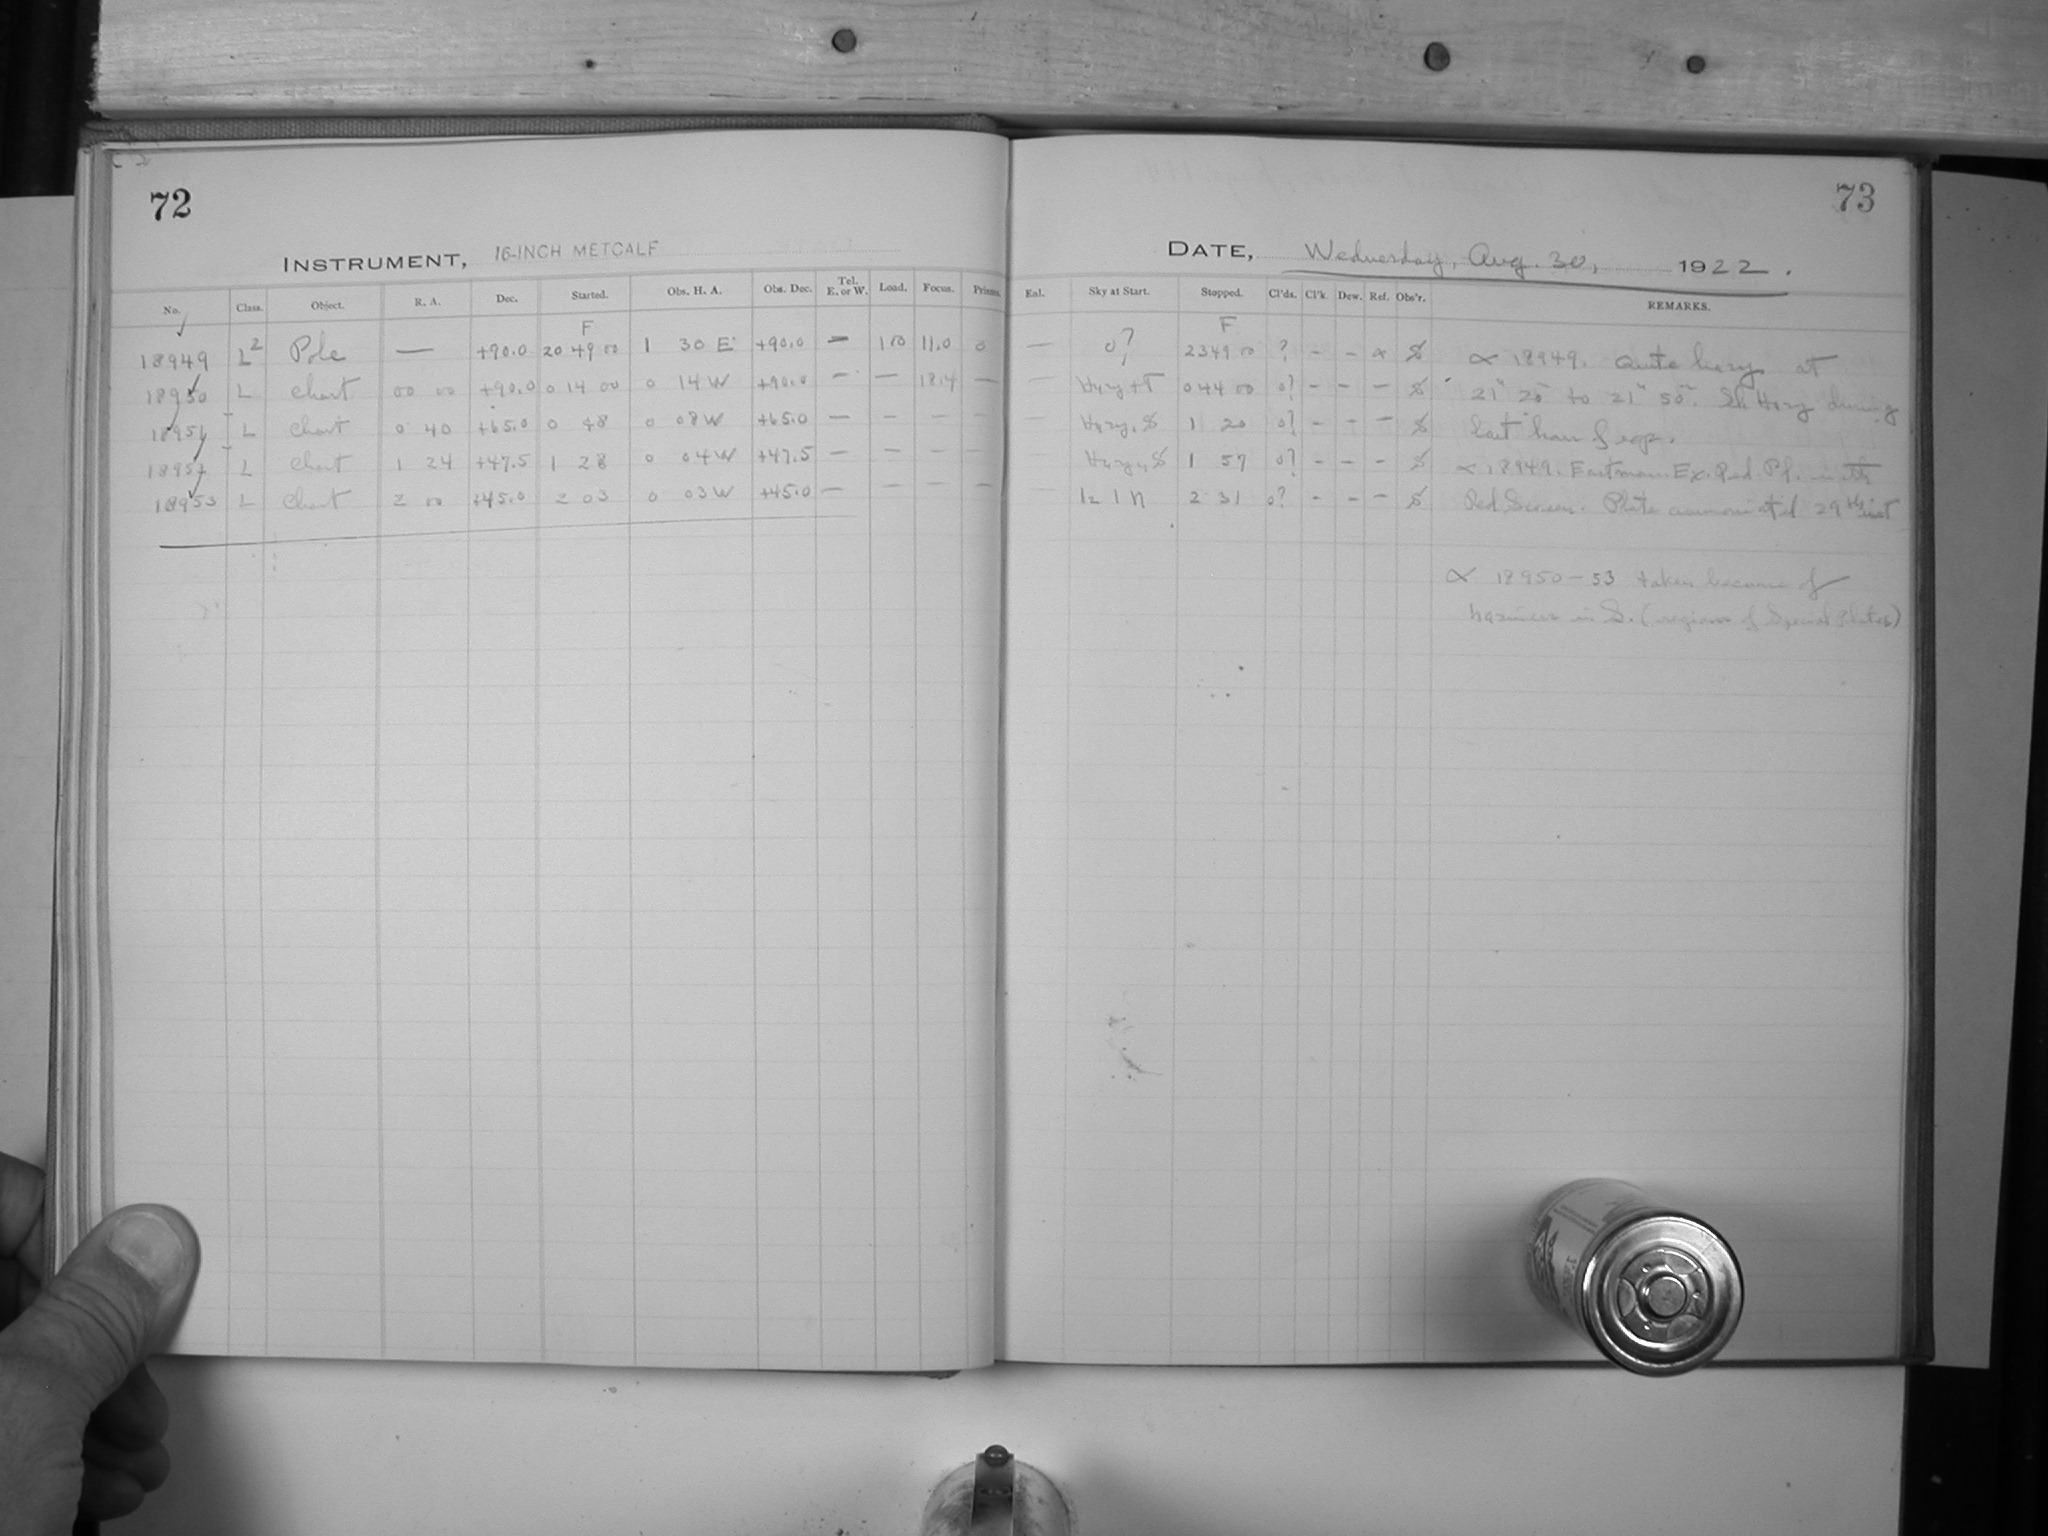 72
73
INSTRUMENT, 16-INCH METCALF
DATE, Wednesday, Aug. 30, 1922.
No. Class. Object. R. A. Dec. Started. Obs. H. A. Obs. Dec. Tel. E. or W. Load. Focus. Prisms. Enl. Sky at Start. Stopped. Cl'ds. Cl'k. Dew. Ref. Obs'r. REMARKS.
F F
18949 L2 Pole — +90.0 20 49 00 1 30 E +90.0 — 100 11.0 0 — 0? 23 49 00 ? - - α ∝ 18949. Quite hazy at
18950 L Chart 00 00 +90.0 0 14 00 0 14 W +90.0 — — 18.4 — — Hazy + T 0 44 00 0? - - - 21h 20m to 21h 50m. Sl. Hazy during
18951 L Chart 0 40 +65.0 0 48 0 08 W +65.0 — — — — Hazy, 1 20 0? - - - last hour of exp.
18952 L Chart 1 24 +47.5 1 28 0 04 W +47.5 — — — — Hazy, 1 57 0? - - - ∝ 18949. Eastman Ex. Rad. Pl. with
18953 L Chart 2 00 +45.0 2 03 0 03 W +45.0 — — — — 2 31 0? - - - Red Screen. Plate ammoniated 29th inst
∝ 18950-53 taken because of
haziness in S. (regions of Special Plates)